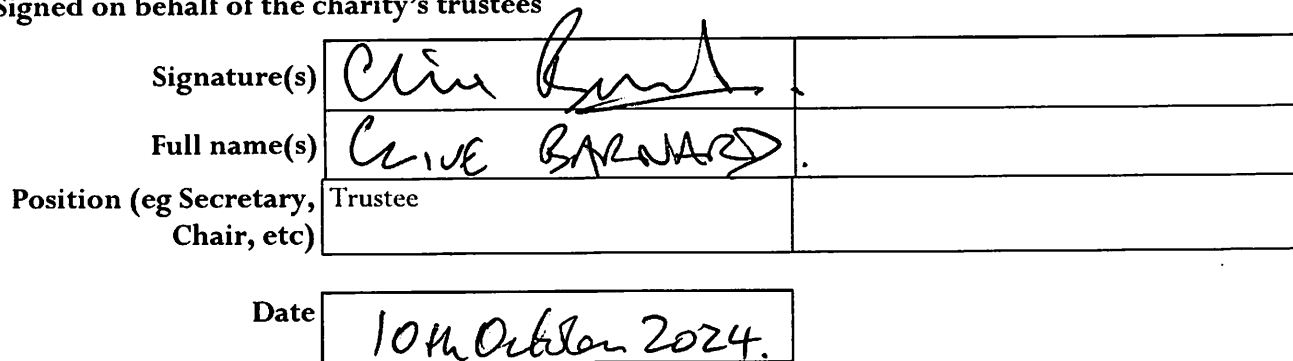 Signed on behalf of the charity's trustees
Signature(s) Clive Barnard.
Full name(s) CLIVE BARNARD.
Position (eg Secretary, Trustee
Chair, etc)
Date 10th October 2024.